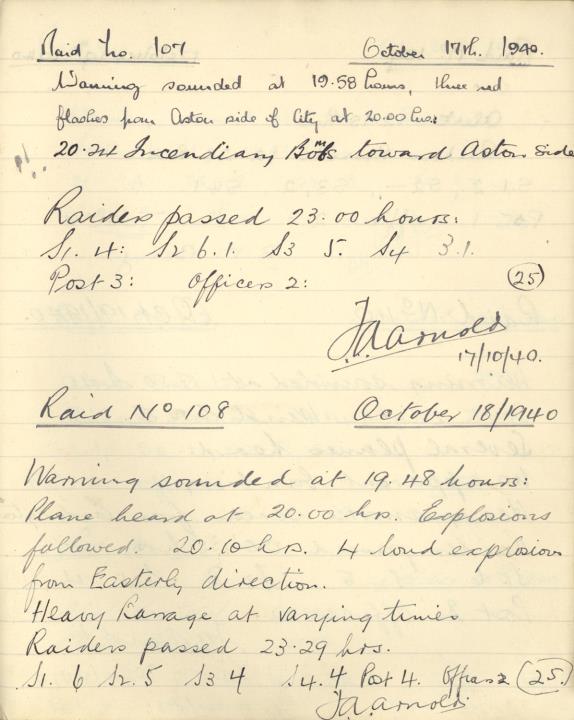 Raid No. 107 October 17th. 1940.
Warning sounded at 19.58 hours, three red
flashes from Aston side of City at 20.00 hrs:
20.24 Incendiary Bombs toward Aston Side
Raiders passed 23.00 hours:
S1. 4: S2 6.1. S3 5. S4 3.1.
Post 3: Officers 2: (25)
J.A. Arnold
17/10/40.
Raid No 108 October 18/1940
Warning sounded at 19.48 hours:
Plane heard at 20.00 hrs. Explosions
followed. 20.10 hrs. 4 loud explosion
from Easterly direction.
Heavy Barrage at varying times
Raiders passed 23.29 hrs.
S1. 6 S2. 5 S3 4 S4. 4 Post 4. Officers 2 (25.)
J.A. Arnold